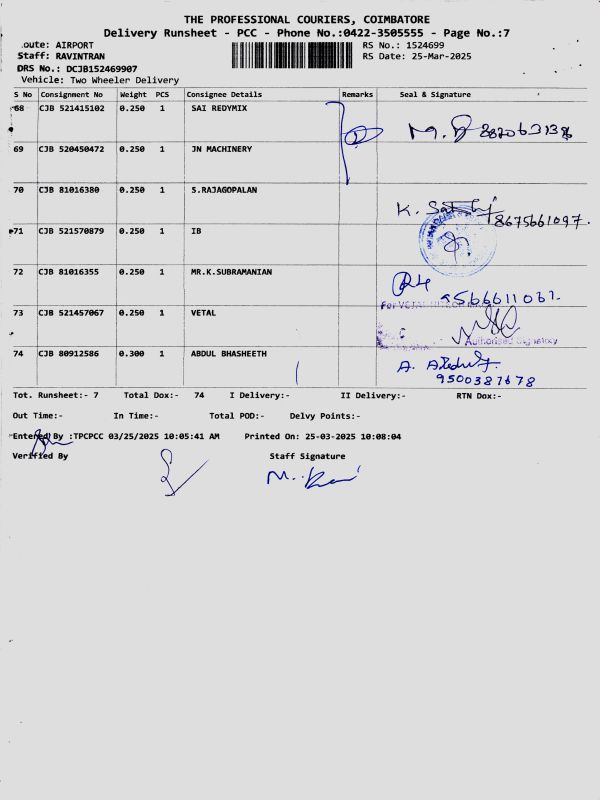 THE PROFESSIONAL COURIERS, COIMBATORE
Delivery Runsheet - PCC - Phone No.:0422-3505555 - Page No.:7
.oute: AIRPORT RS No.: 1524699
Staff: RAVINTRAN RS Date: 25-Mar-2025
DRS No.: DCJB152469907
Vehicle: Two Wheeler Delivery
S No Consignment No Weight PCS Consignee Details Remarks Seal & Signature
68 CJB 521415102 0.250 1 SAI REDYMIX
69 CJB 520450472 0.250 1 JN MACHINERY
70 CJB 81016380 0.250 1 S.RAJAGOPALAN K. 8675661097.
71 CJB 521570879 0.250 1 IB
72 CJB 81016355 0.250 1 MR.K.SUBRAMANIAN
73 CJB 521457067 0.250 1 VETAL Authorised Signatory
74 CJB 80912586 0.300 1 ABDUL BHASHEETH A.
9500387678
Tot. Runsheet:- 7 Total Dox:- 74 I Delivery:- II Delivery:- RTN Dox:-
Out Time:- In Time:- Total POD:- Delvy Points:-
Entered By :TPCPCC 03/25/2025 10:05:41 AM Printed On: 25-03-2025 10:08:04
Verified By Staff Signature